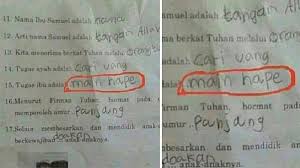 11. Nama Ibu Samuel adalah nama
12. Arti nama Samuel adalah
13. Kita menerima berkat Tuhan melalui orang
14. Tugas ayah adalah Cari uang
15. Tugas ibu adalah main hape
16. Menurut Firman Tuhan, hormat pada
memperoleh umur panjang
17. Selain membesarkan dan mendidik anak
anak-anaknya.
amuel adalah tangan Allah
an berkat Tuhan melalu
adalah Cari uang
dalah main hape
irman Tuhan, hormat pada
umur panjang
besarkan dan mendidik anak-
anak-anaknya.